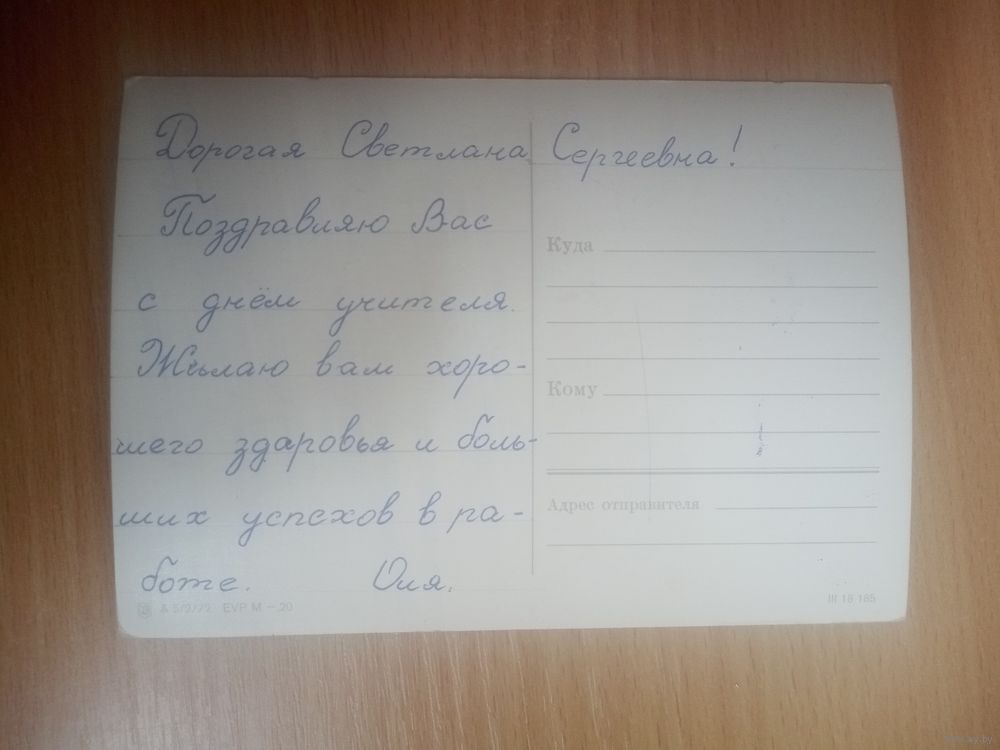 Дорогая Светлана Сергеевна!
Поздравляю Вас
с днём учителя.
Желаю вам хоро-
шего здаровья и боль-
ших успехов в ра-
боте. Оля.
Куда
Кому
Адрес отправителя
A 5/2/72 EVP M –.20
III 18 185